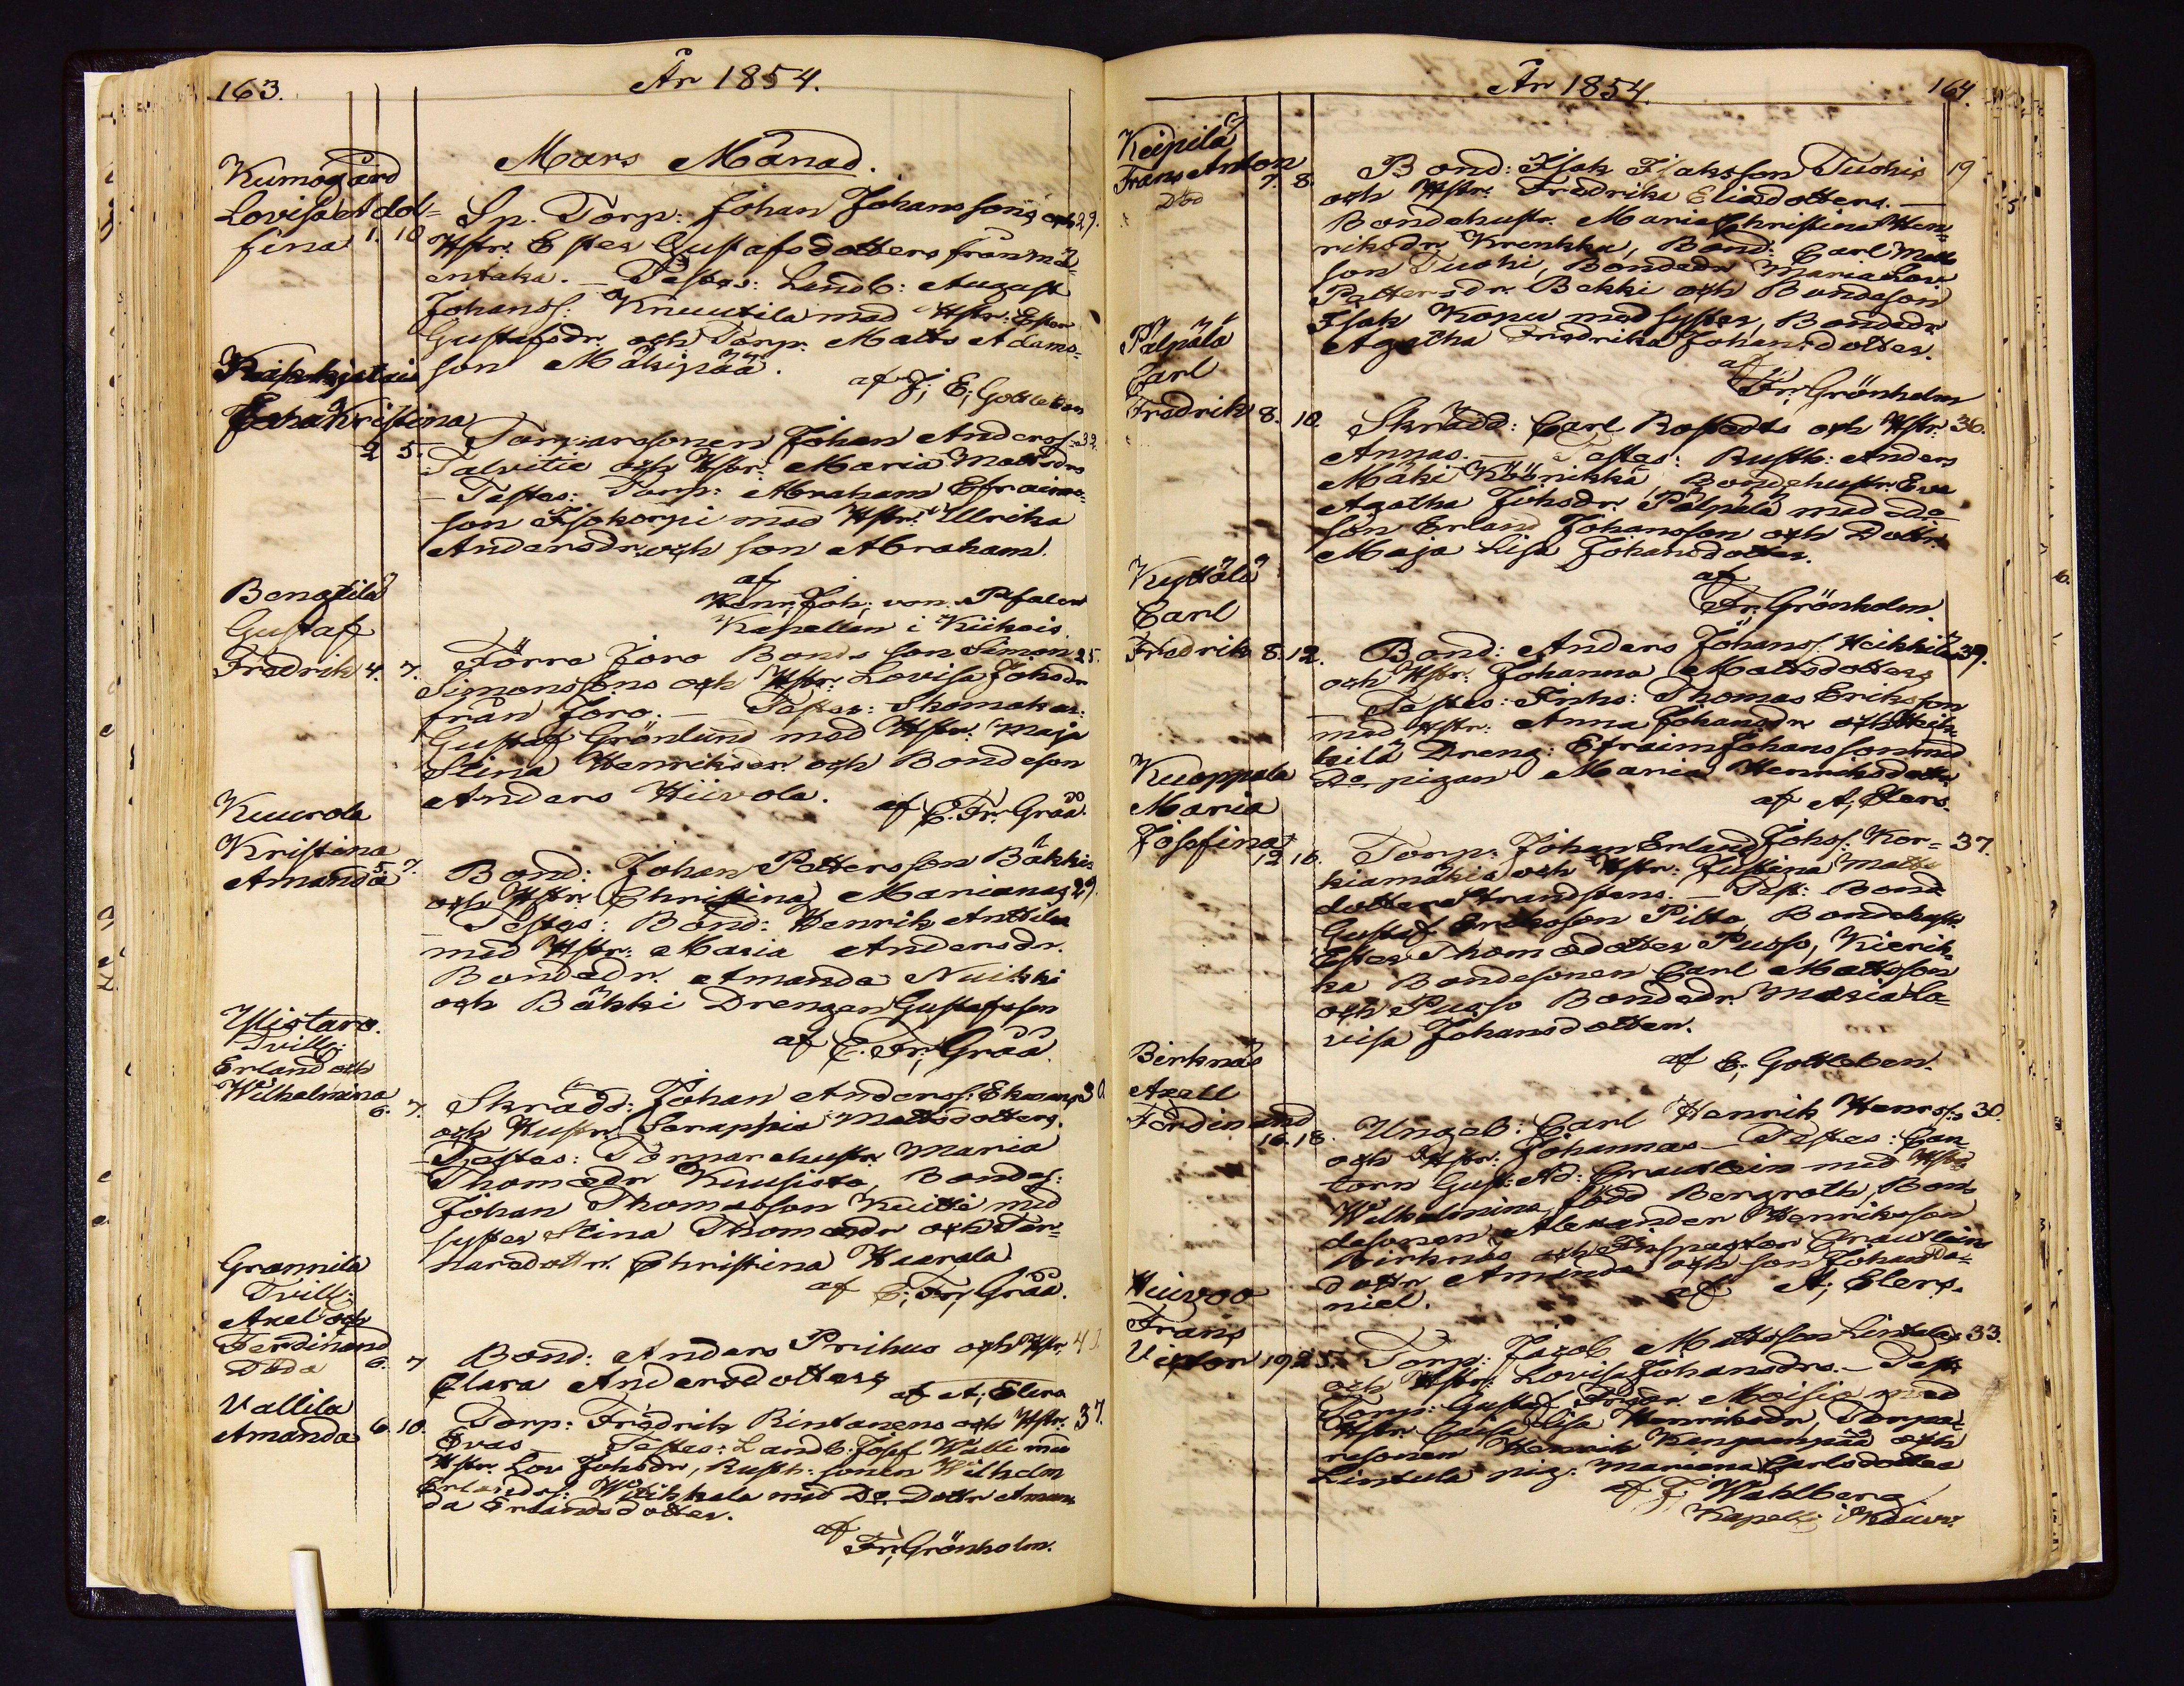 163.
År 1854.
Mars Månad.
Kumogård
Lovisa Adol=
fina 1. 10
Sp. Torp: Johan Johanssons och 29.
Hstr. Ester Gustafsdotters från Mä=
entaka. — Testes: Landb: August
Johanss: Knuutila med Hstr: Ester
Gustafsdr. och Torp. Matts Adams=
son Mäkipää.
af J; E; Gottleben
Johanna Kristina
2 5.
Torparesonen Johan Anderss: 33.
Talvitie och Hstr: Maria Mattsdrs
— Testes: Torp: Abraham Efraims=
son Isokorpi med Hstr: Ulrika
Andersdr. och son Abraham.
af
Henr; Joh; von Pfaler
Kapellan i Kiikois.
Benotila
Gustaf
Fredrik 4. 7.
Förre Joro Bonde son Simon 25.
Simonssons och Hstr: Lovisa Johsdr
från Joro. — Testes: Skomakar:
Gustaf Grönlund med Hstr: Maja
Stina Henriksdr. och Bondeson
Anders Hiivola.
af C. Fr. Gråå.
Kuurola
Kristina
Amanda 5. 7.
Bond: Johan Pettersson Bäkkis
och Hstr. Christina Marianas 29.
— Testes: Bond: Henrik Anttila
med Hstr: Maria Andersdr.
Bondedr. Amanda Nuikki
och Bäkki Drengen Gustafsson
af C. Fr; Gråå.
Ylistaro.
Tvill:
Erland och
Wilhelmina
6. 7.
Skrädd: Johan Anderss: Ekmans 30.
och Hustr: Serappia Mattsdotters.
— Testes: Torparehustr. Maria
Thomædr Kuusisto, Bondes:
Johan Thomasson Kuitti med
syster Stina Thomædr och Tor=
paredottr. Christina Huarala
af C; Fr; Gråå.
Grannila
Tvill:
Axel och
Ferdinand
Döda 6. 7
Bond: Anders Prihus och Hstr. 43.
Clara Andersdotters
af A; Elers
Vallila
Amanda 6. 10.
Torp: Fredrik Rintanens och Hstr. 37.
Evas — Testes: Landb: Josef Wälli med
Hstr. Lov Johsdr, Rusth: sonen Wilhelm
Erlandss: Wiikkala med Do Dottr Aman=
da Erlandsdotter.
af
Fr; Grönholm.
År 1854.
164.
Keipilä
Frans Anton
7. 8.
Död
Bond: Isak Isaksson Tuskis 19
och Hstr: Fredrika Eliædotters. —
Bondehustr. Maria Christina Hen=
riksdr. Krenkka, Bond: Carl Matts
son Tuoki, Bondedr Maria Lov
Pettersdr. Bekki och Bondeson
Isak Kopu med syster, Bondedr
Agatha Fredrika Johansdotter.
af
Fr; Grönholm
Pälpälä
Carl
Fredrik 8. 10
Skrädd: Carl Rostedts och Hstr: 36.
Annas. — Testes: Rusth: Anders
Mäki Köörikkä, Bondehustr. Eva
Agatha Johsdr. Pälpälä med do
son Erland Johansson och Dottr
Maja Lisa Johansdotter.
af
Fr. Grönholm.
Kyttälä
Carl
Fredrik 8. 12.
Bond: Anders Johanss. Heikkiläs 39.
och Hstr: Johanna Mattsdotters
— Testes: Inhs: Thomas Eriksson
med Hstr: Anna Johansdr och Heik=
kilä Dreng: Efraim Johansson med
Do pigan Maria Henriksdottr
af A; Elers.
Kuoppala
Maria
Josefina
12 16.
Torp: Johan Erland Johss: Kor= 37.
kiamäkis och Hstr: Justina Matts
dotters Strandstens. — Test: Bond
Gustaf Eriksson Piltto, Bondehustr.
Ester Thomædotter Pusso, Kierik=
ka Bondesonen Carl Mattsson
och Pusso Bondedr. Maria Lo=
visa Johansdotter.
af E; Gottleben.
Birknäs
Axell
Ferdinand
16. 18.
Ungeb: Carl Henrik Henrss: 30.
och Hstr: Johannas — Testes: Can
torn Gust: Ad: Grautlein med Hstr
Wilhelmina född Bergroth, Bon=
desonen Alexander Henriksson
Birknäs och Inspector Grautleins
dottr Aminda och son Johan Da=
niel.
af A; Elers.
Huivoo
Frans
Victor 19 25.
Torp: Jacob Mattsson Lintulas 33.
och Hstr: Lovisa Johansdrs. — Test:
Torp: Gustaf Moisio med
Hstr Caisa Lisa Henriksdr, Torpa=
resonen Henrik Kangaanpää och
Lintula pig: Mariana Carlsdotter
af J; Wahlberg